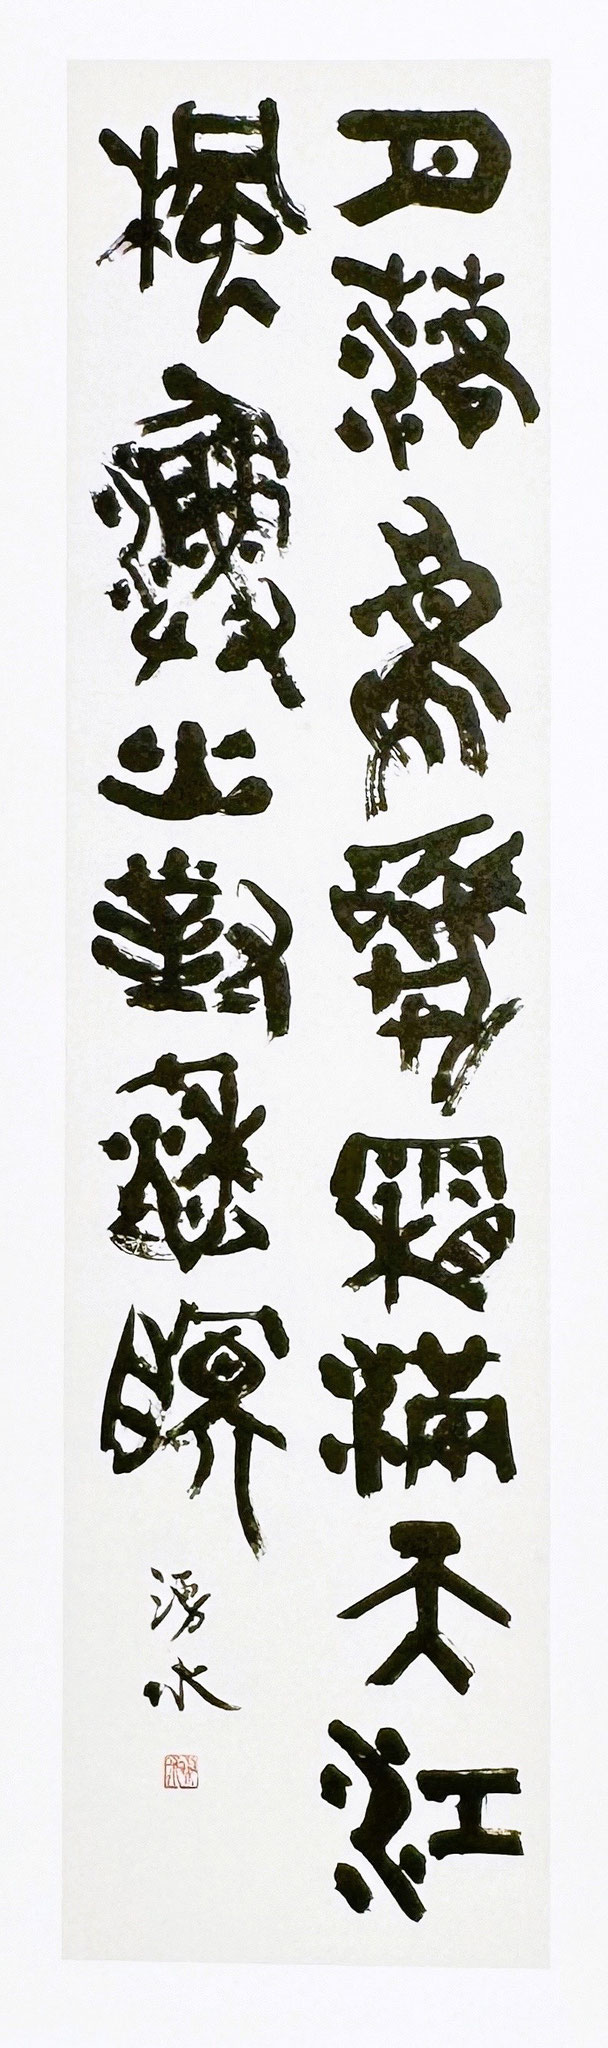 月落烏啼霜滿天江
楓漁火對愁眠
湧水